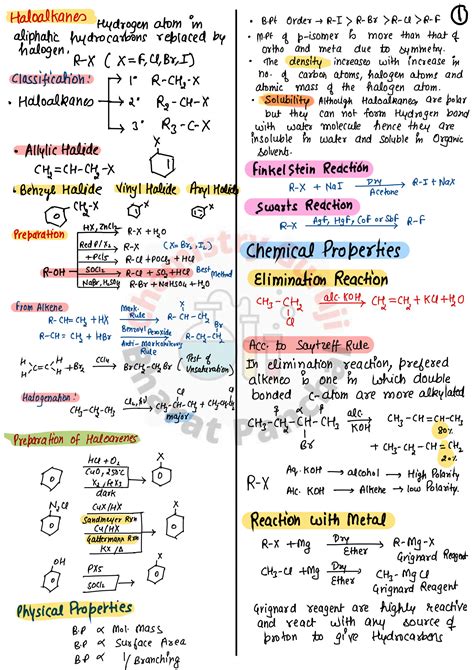 Haloalkanes Hydrogen atom in
aliphatic hydrocarbons replaced by
halogen.
R-X (X=F, Cl, Br, I)
Classification:-
• Haloalkanes
1° R-CH₂-X
2° R₂-CH-X
3° R₃-C-X
• Allylic Halide
CH₂=CH-CH₂-X
X
• Benzyl Halide Vinyl Halide Aryl Halide
CH₂-X
X
X
Preparation
R-OH
HX, ZnCl₂ R-X + H₂O
Red P/X₂ R-X (X=Br₂, I₂)
+PCl₅ R-Cl + POCl₃ + HCl
SOCl₂ R-Cl + SO₂ + HCl Best Method
NaBr, H₂SO₄ R-Br + NaHSO₄ + H₂O
From Alkene
R-CH=CH₂ + HX Mark. Rule R-CH-CH₃
Br
R-CH=CH₂ + HBr Benzoyl Peroxide R-CH₂-CH₂
Anti-Markovnikov Rule
Br
H H
C=C + Br₂ CCl₄ BrCH₂-CH₂Br (Test of Unsaturation)
H H
Halogenation:
CH₃-CH₂-CH₃ Cl₂, hv CH₃-CH-CH₃ + CH₃CH₂CH₂
Cl
major
Preparation of Haloarenes
HCl + O₂
CuO, 250°C
X₂/FeX₃
dark
X
N₂Cl
CuX/HX
Sandmeyer Rxn
Cu/HX
Gattermann Rxn
KX/Δ
X
OH
PX₅
SOCl₂
X
Physical Properties
B.P ∝ Mol. Mass
B.P ∝ Surface Area
B.P ∝ 1/Branching
①
• B.Pt Order → R-I > R-Br > R-Cl > R-F
• MPt of p-isomer is more than that of
ortho and meta due to symmetry.
• The density increases with increase in
no. of carbon atoms, halogen atoms and
atomic mass of the halogen atom.
• Solubility Although Haloalkanes are polar
but they can not form Hydrogen bond
with water molecule hence they are
insoluble in water and soluble in Organic
Solvents.
Finkelstein Reaction
R-X + NaI Dry Acetone R-I + NaX
Swarts Reaction
R-X AgF, HgF₂ CoF or SbF R-F
Chemical Properties
Elimination Reaction
CH₃-CH₂ alc. KOH CH₂=CH₂ + KCl + H₂O
Cl
Acc. to Saytzeff Rule
In elimination reaction, prefered
alkenes is one in which double
bonded C-atom are more alkylated
CH₃-CH₂-CH-CH₃ alc. KOH CH₃-CH=CH-CH₃
Br
80%
+ CH₃-CH₂-CH=CH₂
20%
R-X
Aq. KOH → alcohol → High Polarity
Alc. KOH → Alkene → low Polarity.
Reaction with Metal
R-X + Mg Dry Ether R-Mg-X
Grignard Reagent
CH₃-Cl + Mg Dry Ether CH₃-MgCl
Grignard Reagent
Grignard reagent are highly reactive
and react with any source of
proton to give Hydrocarbons
Bharat Panchal